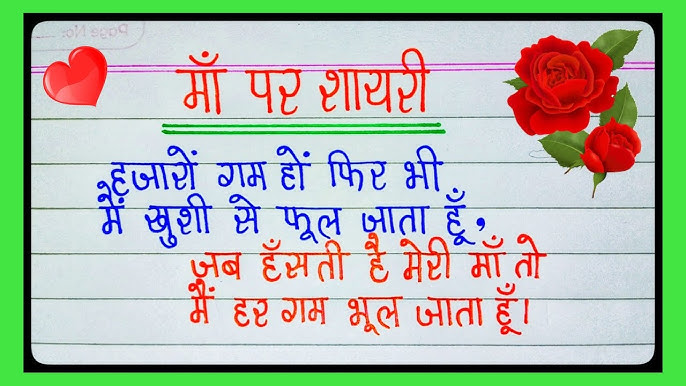 माँ पर शायरी
हजारों गम हों फिर भी
मैं खुशी से फूल जाता हूँ,
जब हँसती है मेरी माँ तो
मैं हर गम भूल जाता हूँ।